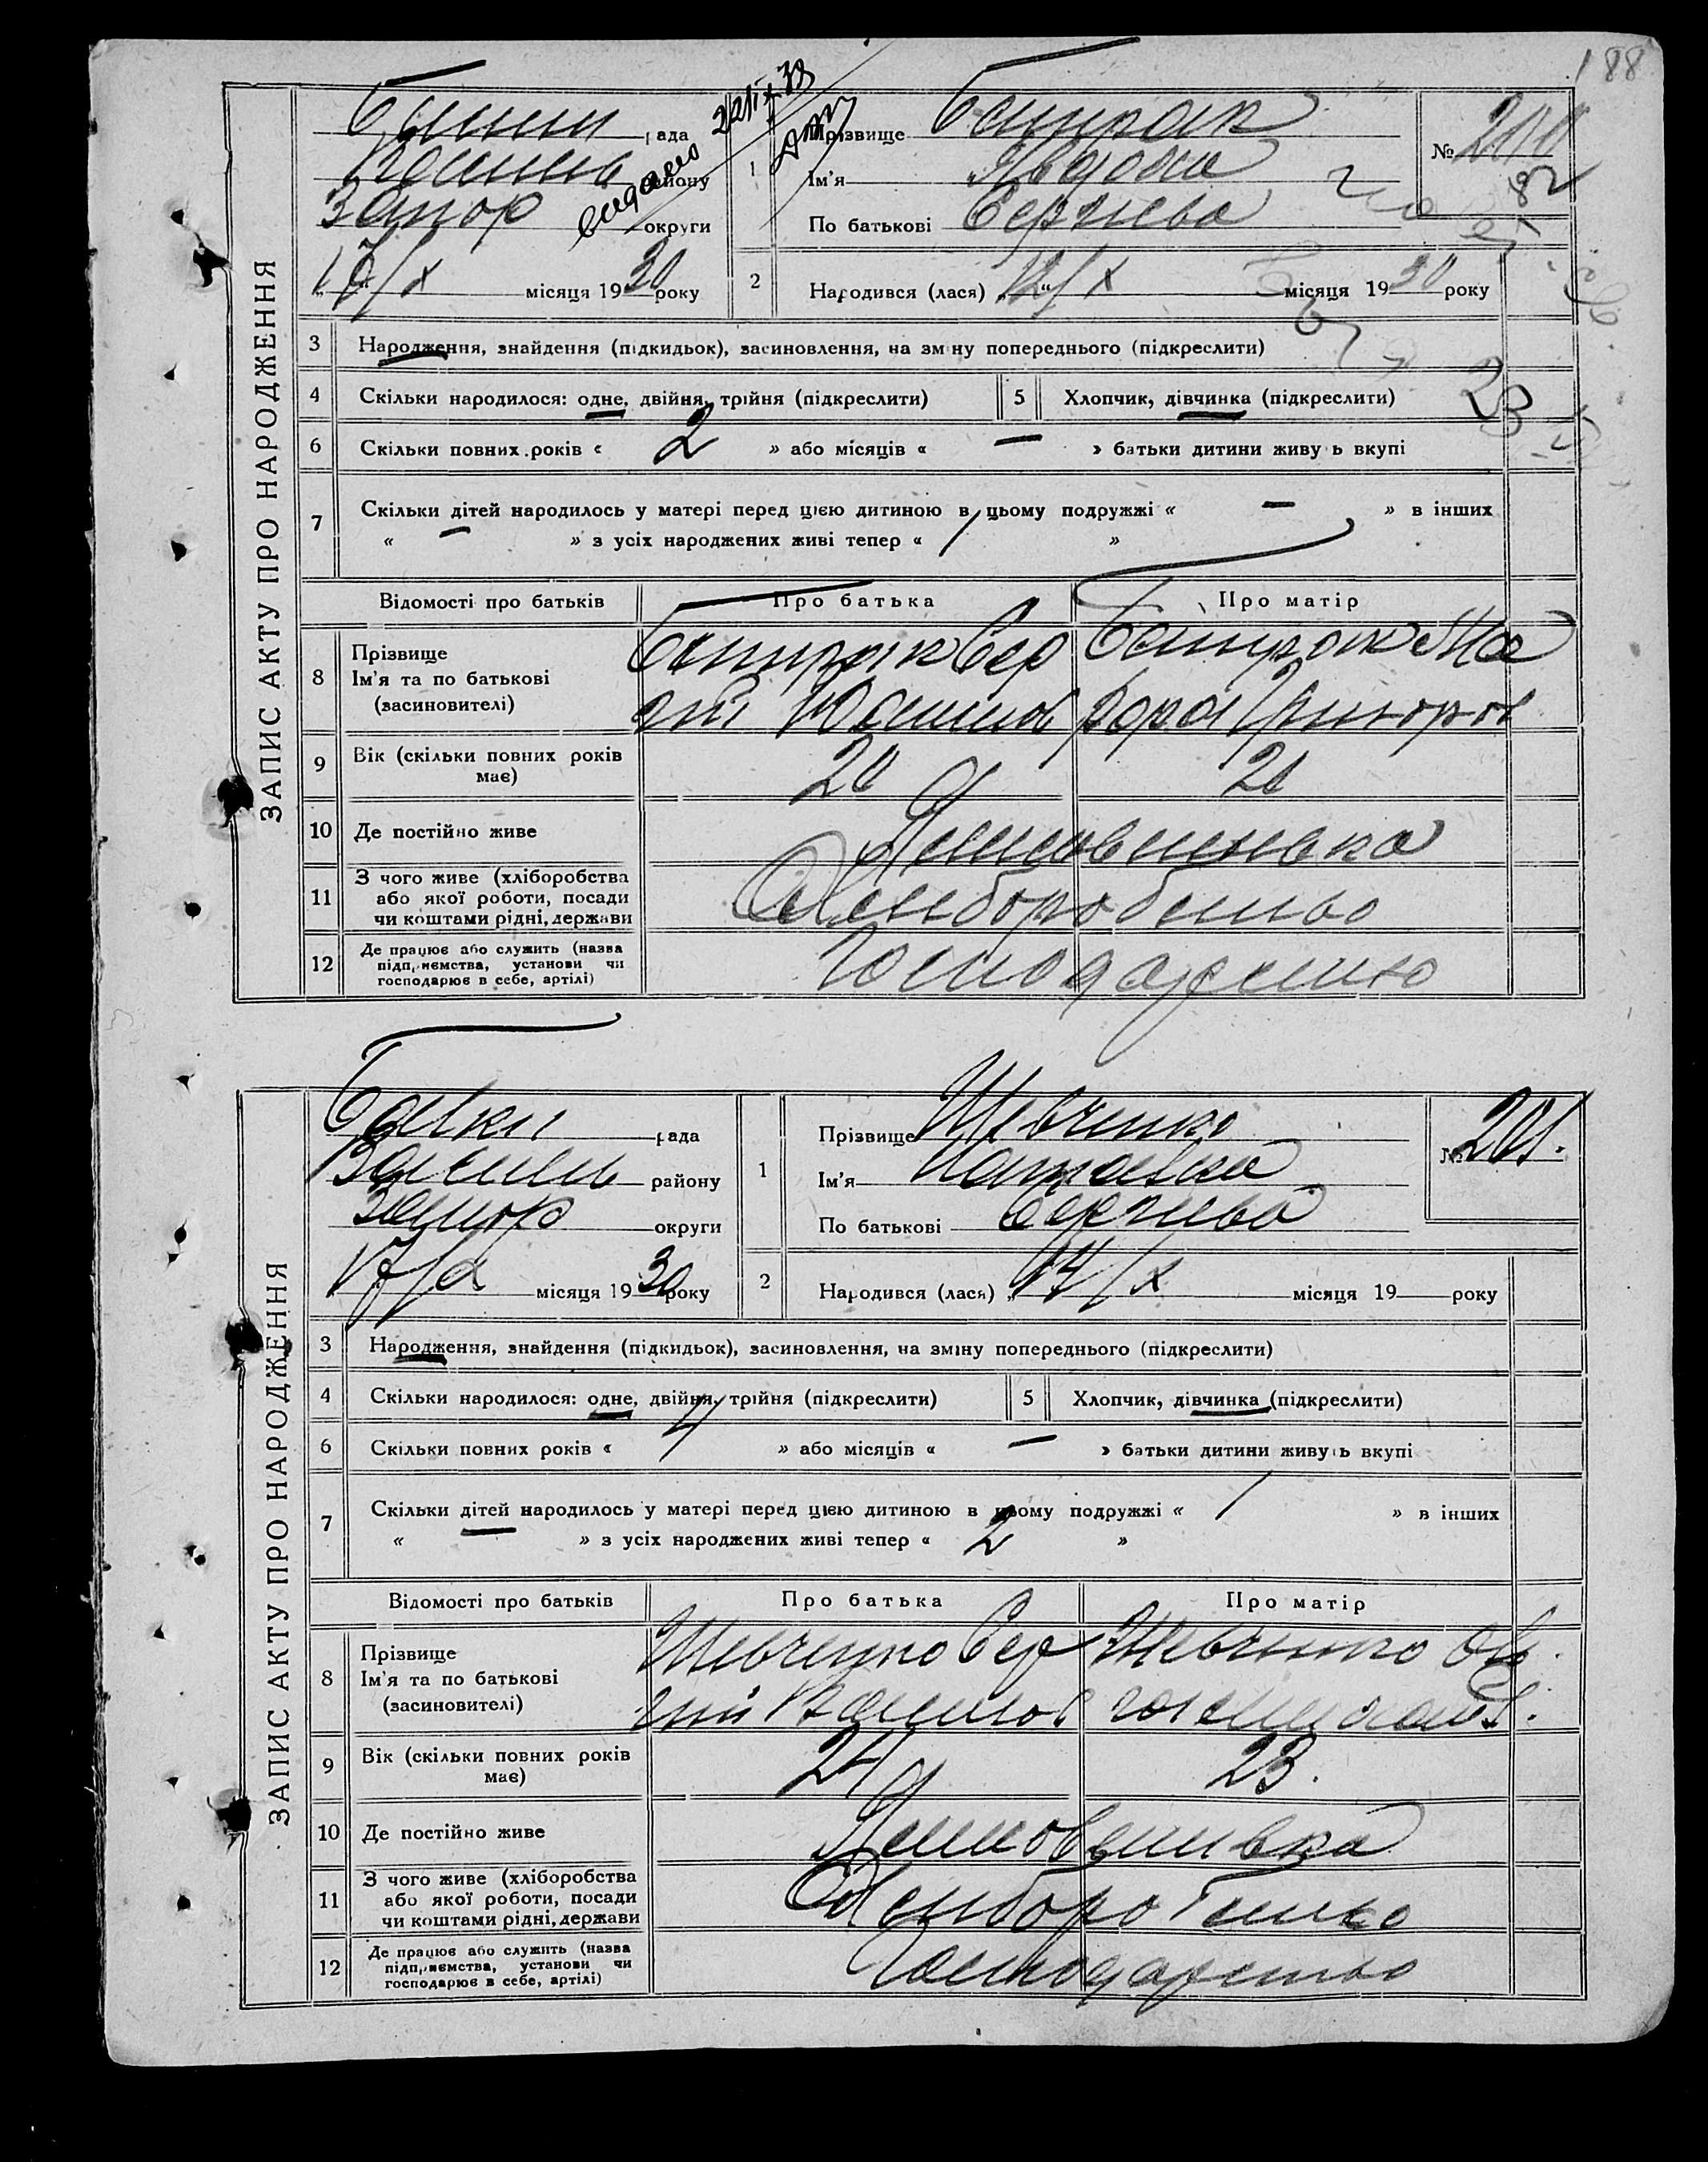 188
ЗАПИС АКТУ ПРО НАРОДЖЕННЯ
рада
району
Запор округи
17/X місяця 1930 року
видано
1 Прізвище Батрак
Ім'я Явдоха
По батькові Сергієва
№ 200
82
2 Народився (лася) „12/X“ місяця 1930 року
3 Народження, знайдення (підкидьок), засиновлення, на зміну попереднього (підкреслити)
4 Скільки народилося: одне, двійня, трійня (підкреслити)
5 Хлопчик, дівчинка (підкреслити)
23
6 Скільки повних років « 2 » або місяців « — » батьки дитини живуть вкупі
7 Скільки дітей народилось у матері перед цією дитиною в цьому подружжі « — » в інших
« — » з усіх народжених живі тепер « 1 »
Відомості про батьків Про батька Про матір
8 Прізвище
Ім'я та по батькові
(засновителі)
Батрак Сер
гій Васильов
Батрак Ма
Григоров
9 Вік (скільки повних років має) 20 20
10 Де постійно живе
11 З чого живе (хліборобства або якої роботи, посади чи коштами рідні, держави Хлиборобство
12 Де працює або служить (назва підприємства, установи чи господарює в себе, артілі) Господарство
ЗАПИС АКТУ ПРО НАРОДЖЕННЯ
Балки рада
Василь району
Запор округи
17/X місяця 1930 року
1 Прізвище Шевченко
Ім'я Наталка
По батькові Сергиева
№ 201.
2 Народився (лася) „14/X місяця 19 року
3 Народження, знайдення (підкидьок), засиновлення, на зміну попереднього (підкреслити)
4 Скільки народилося: одне, двійня, трійня (підкреслити)
5 Хлопчик, дівчинка (підкреслити)
6 Скільки повних років « 4 » або місяців « — » батьки дитини живуть вкупі
7 Скільки дітей народилось у матері перед цією дитиною в цьому подружжі « 1 » в інших
« — » з усіх народжених живі тепер « 2 »
Відомості про батьків Про батька Про матір
8 Прізвище
Ім'я та по батькові
(засиновителі)
Шевченко Сер
гий Васильов
Шевченко
9 Вік (скільки повних років має) 24 23.
10 Де постійно живе
11 З чого живе (хліборобства або якої роботи, посади чи коштами рідні, держави Хлиборобство
12 Де працює або служить (назва підприємства, установи чи господарює в себе, артілі) Господарство